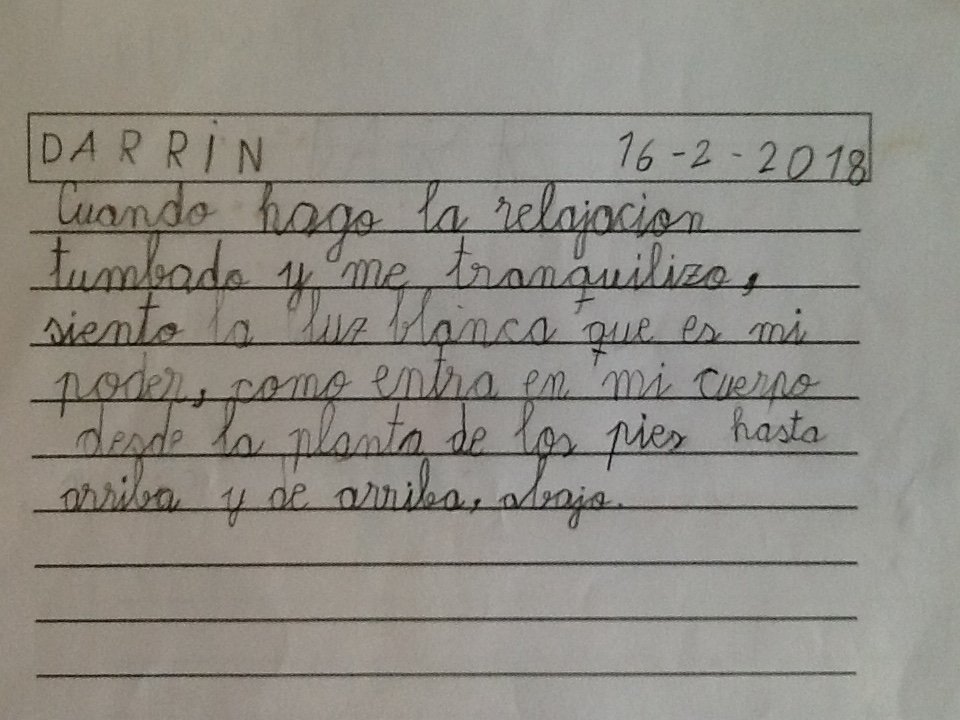 DARRIN 16-2-2018
Cuando hago la relajacion
tumbado y me tranquilizo,
siento la luz blanca que es mi
poder, como entra en mi cuerpo
desde la planta de los pies hasta
arriba y de arriba, abajo.